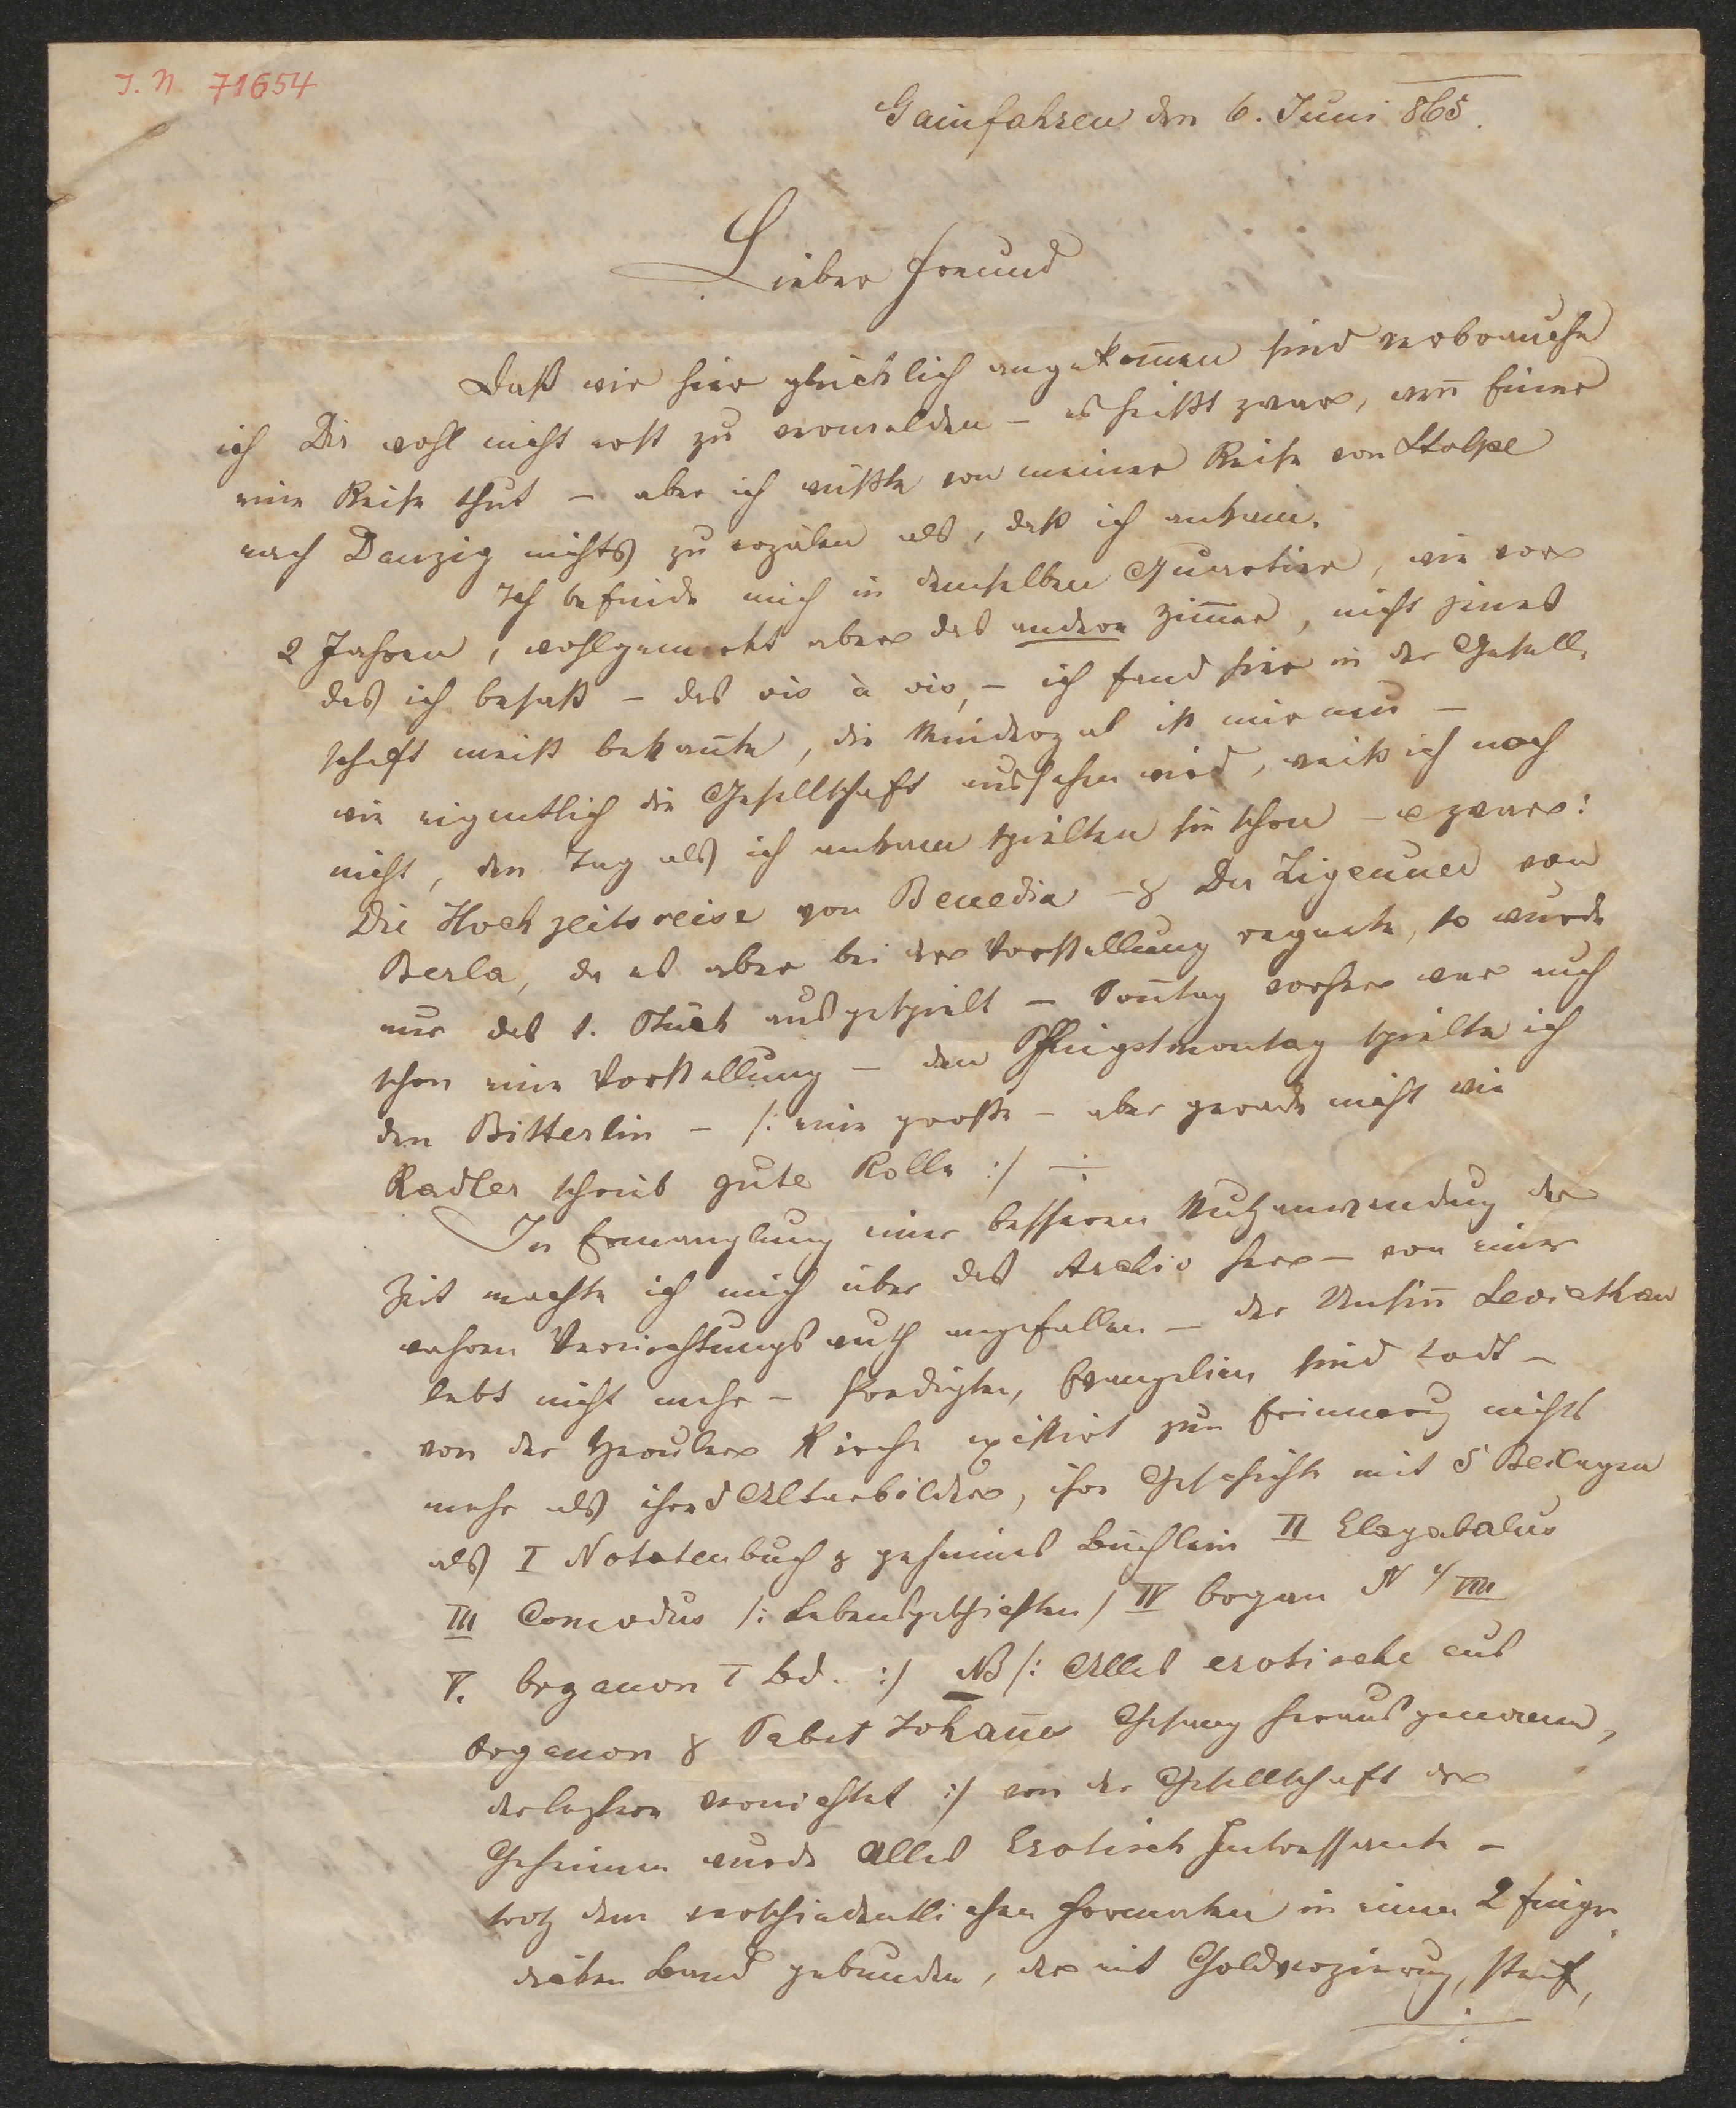 J. N. 71654
Gainfahren den 6. Juni 865.
Lieber Freund
Daß wir hier glücklich angekom̄en sind verbrauche
ich Dir wohl nicht erst zu vermelden – es heißt zwar, wen̄ Einer
eine Reise thut – aber ich wüßte von meiner Reise von Stolpe
nach Danzig nichts zu erzälen als, daß ich ankam.
Ich befinde mich in demselben Quartier, wie vor
2 Jahren, wohlgemerkt aber das andere Zim̄er, nicht jenes
das ich besaß – das vis à vis, – ich fand hier in der Gesell-
schaft meist bekan̄te, die Minderzal ist mir neu –
wie eigentlich die Gesellschaft aussehen wird, weiß ich noch
nicht, den Tag als ich ankam spielten sie schon – & zwar:
Die Hochzeitsreise von Benedix & Der Zigeuner von
Berla, da es aber bei der Vorstellung regnete, so wurde
nur das 1. Stück ausgespielt – Son̄tag vorher war auch
schon eine Vorstellung – den Pfingstmontag spielte ich
den Bitterlin – /: eine große – aber gerade nicht wie
Radler schrieb gute Rolle :/ –
In Ermanglung einer besseren Nutzanwendung der
Zeit machte ich mich über das Archiv her – von einer
wahren Vernichtungswuth angefallen – der Unsin̄ Leviathan
lebt nicht mehr – Predigten, Evangelien sind todt –
von der Kirche existirt zur Erinnerung nichts
mehr als ihre Altarbilder, ihre Geschichte mit 5 Beilagen
als I Notatenbuch & geheimes Büchlein II Elagabalus
III Comodus /: Lebensgeschichten / IV Organ N 1/VIII
V. Organon I Bd. :/ NB /: Alles erotische aus
Organon & Pabst Johan̄es Gesang herausgenommen,
der letztere vernichtet :/ von der Gesellschaft der
Geheimen wurde Alles Erotisch Interessante –
trotz dem verschiedentlichen Formaten in einen 2 Finger
dicken Band gebunden, der mit Goldverzierung, steif,